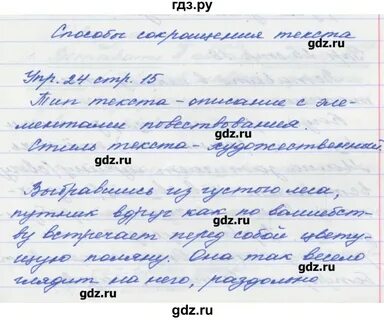 гдз.ру
Способы сокращения текста
gdz.ru
Упр. 24 стр. 15
gdz.ru
Тип текста - описание с эле-
ментами повествования.
gdz.ru
Стиль текста - художественный.
Выбравшись из густого леса,
gdz.ru
путник вдруг как по волшебст-
ву встречает перед собой цвету-
gdz.ru
щую поляну. Она так весело
глядит на него, раздольно
gdz.ru